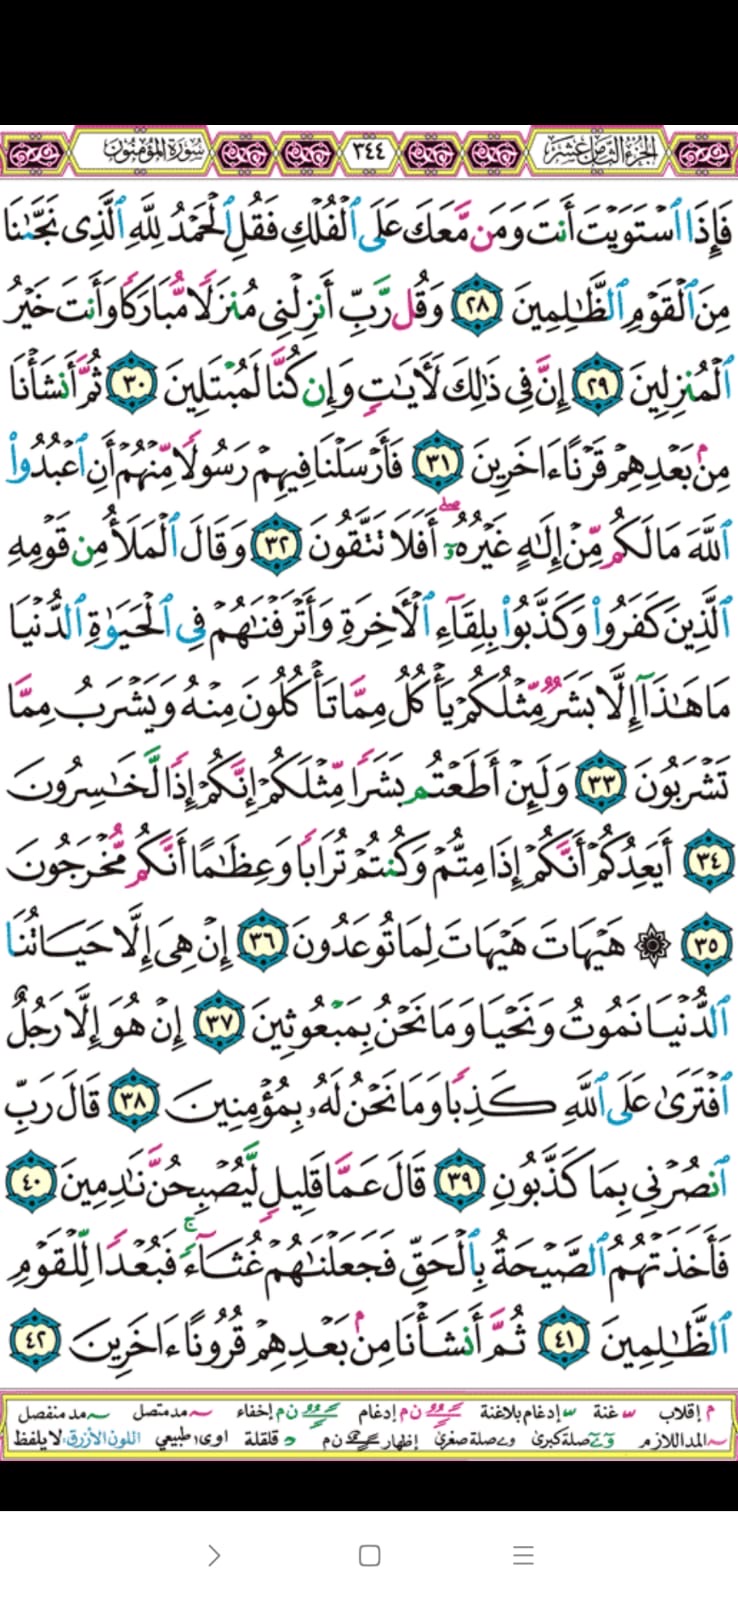 الجزء الثامن عشر ٣٤٤ سورة المؤمنون
فَإِذَا ٱسْتَوَيْتَ أَنتَ وَمَن مَّعَكَ عَلَى ٱلْفُلْكِ فَقُلِ ٱلْحَمْدُ لِلَّهِ ٱلَّذِى نَجَّىٰنَا
مِنَ ٱلْقَوْمِ ٱلظَّـٰلِمِينَ ٢٨ وَقُل رَّبِّ أَنزِلْنِى مُنزَلًا مُّبَارَكًا وَأَنتَ خَيْرُ
ٱلْمُنزِلِينَ ٢٩ إِنَّ فِى ذَٰلِكَ لَـَٔايَـٰتٍ وَإِن كُنَّا لَمُبْتَلِينَ ٣٠ ثُمَّ أَنشَأْنَا
مِنۢ بَعْدِهِمْ قَرْنًا ءَاخَرِينَ ٣١ فَأَرْسَلْنَا فِيهِمْ رَسُولًا مِّنْهُمْ أَنِ ٱعْبُدُوا۟
ٱللَّهَ مَا لَكُم مِّنْ إِلَـٰهٍ غَيْرُهُۥٓ ۖ أَفَلَا تَتَّقُونَ ٣٢ وَقَالَ ٱلْمَلَأُ مِن قَوْمِهِ
ٱلَّذِينَ كَفَرُوا۟ وَكَذَّبُوا۟ بِلِقَآءِ ٱلْـَٔاخِرَةِ وَأَتْرَفْنَـٰهُمْ فِى ٱلْحَيَوٰةِ ٱلدُّنْيَا
مَا هَـٰذَآ إِلَّا بَشَرٌ مِّثْلُكُمْ يَأْكُلُ مِمَّا تَأْكُلُونَ مِنْهُ وَيَشْرَبُ مِمَّا
تَشْرَبُونَ ٣٣ وَلَئِنْ أَطَعْتُم بَشَرًا مِّثْلَكُمْ إِنَّكُمْ إِذًا لَّخَـٰسِرُونَ
٣٤ أَيَعِدُكُمْ أَنَّكُمْ إِذَا مِتُّمْ وَكُنتُمْ تُرَابًا وَعِظَـٰمًا أَنَّكُم مُّخْرَجُونَ
٣٥ ۞ هَيْهَاتَ هَيْهَاتَ لِمَا تُوعَدُونَ ٣٦ إِنْ هِىَ إِلَّا حَيَاتُنَا
ٱلدُّنْيَا نَمُوتُ وَنَحْيَا وَمَا نَحْنُ بِمَبْعُوثِينَ ٣٧ إِنْ هُوَ إِلَّا رَجُلٌ
ٱفْتَرَىٰ عَلَى ٱللَّهِ كَذِبًا وَمَا نَحْنُ لَهُۥ بِمُؤْمِنِينَ ٣٨ قَالَ رَبِّ
ٱنصُرْنِى بِمَا كَذَّبُونِ ٣٩ قَالَ عَمَّا قَلِيلٍ لَّيُصْبِحُنَّ نَـٰدِمِينَ ٤٠
فَأَخَذَتْهُمُ ٱلصَّيْحَةُ بِٱلْحَقِّ فَجَعَلْنَـٰهُمْ غُثَآءً ۚ فَبُعْدًا لِّلْقَوْمِ
ٱلظَّـٰلِمِينَ ٤١ ثُمَّ أَنشَأْنَا مِنۢ بَعْدِهِمْ قُرُونًا ءَاخَرِينَ ٤٢
م إقلاب غنة إدغام بلاغنة ن م إدغام ن م إخفاء مد متصل مد منفصل
المد اللازم صلة كبرى صلة صغرى إظهار ن م قلقلة اوى طبيعي اللون الأزرق: لا يلفظ